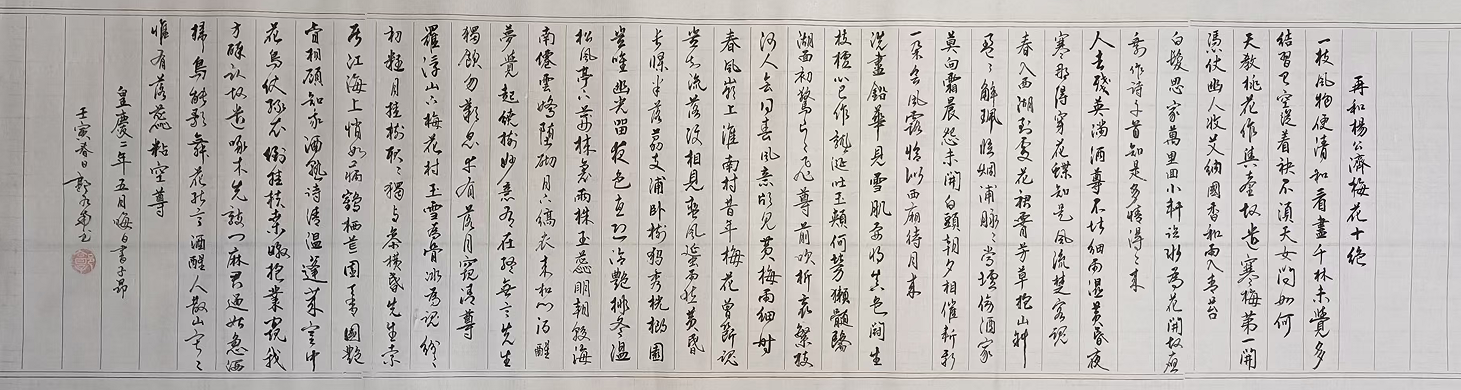 再和楊公濟梅花十絕
一枝風物便清和看盡千林未覺多
結習已空從着袂不須天女問如何
天教桃花作輿臺故遣寒梅第一開
憑仗幽人收艾蒳國香和雨入青苔
白髮思家萬里回小軒臨水為花開故應
剩作詩千首知是多情得得來
人去殘英滿酒尊不堪細雨濕黃昏夜
寒那得穿花蝶知是風流楚客魂
春入西湖到處花裙腰芳草抱山斜
盈盈解珮臨烟浦脉脉當壚傍酒家
莫向霜晨怨未開白頭朝夕相催斬新
一朵含風露恰似西廂待月來
洗盡鉛華見雪肌要將真色鬪生
枝檀心已作龍涎吐玉頰何勞獺髓醫
湖面初驚片片飛尊前吹折最繁枝
何人會得春風意怕見黃梅雨細時
春風嶺上淮南村昔年梅花曾斷魂
豈知流落復相見蠻風蜑雨愁黃昏
長條半落荔支浦臥樹獨秀桄榔園
豈惟幽光留夜色直恐冷艷排冬溫
松風亭下荊棘裏兩株玉蕊明朝暾海
南僊雲嬌墮砌月下縞衣來扣門酒醒
夢覺起繞樹妙意有在終無言先生
獨飲勿歎息幸有落月窺清尊
羅浮山下梅花村玉雪為骨冰為魂紛紛
初疑月挂樹耿耿獨與參橫昏先生索
居江海上悄如病鶴棲荒園天香國艷
肯相顧知我酒熟詩清溫蓬萊宮中
花鳥使綠衣倒挂扶桑暾抱叢窺我
方醉臥故遣啄木先敲門麻君過姑急洒
掃鳥能歌舞花能言酒醒人散山寂寂
惟有落蕊粘空尊
皇慶二年五月晦日書子昂
壬寅春日